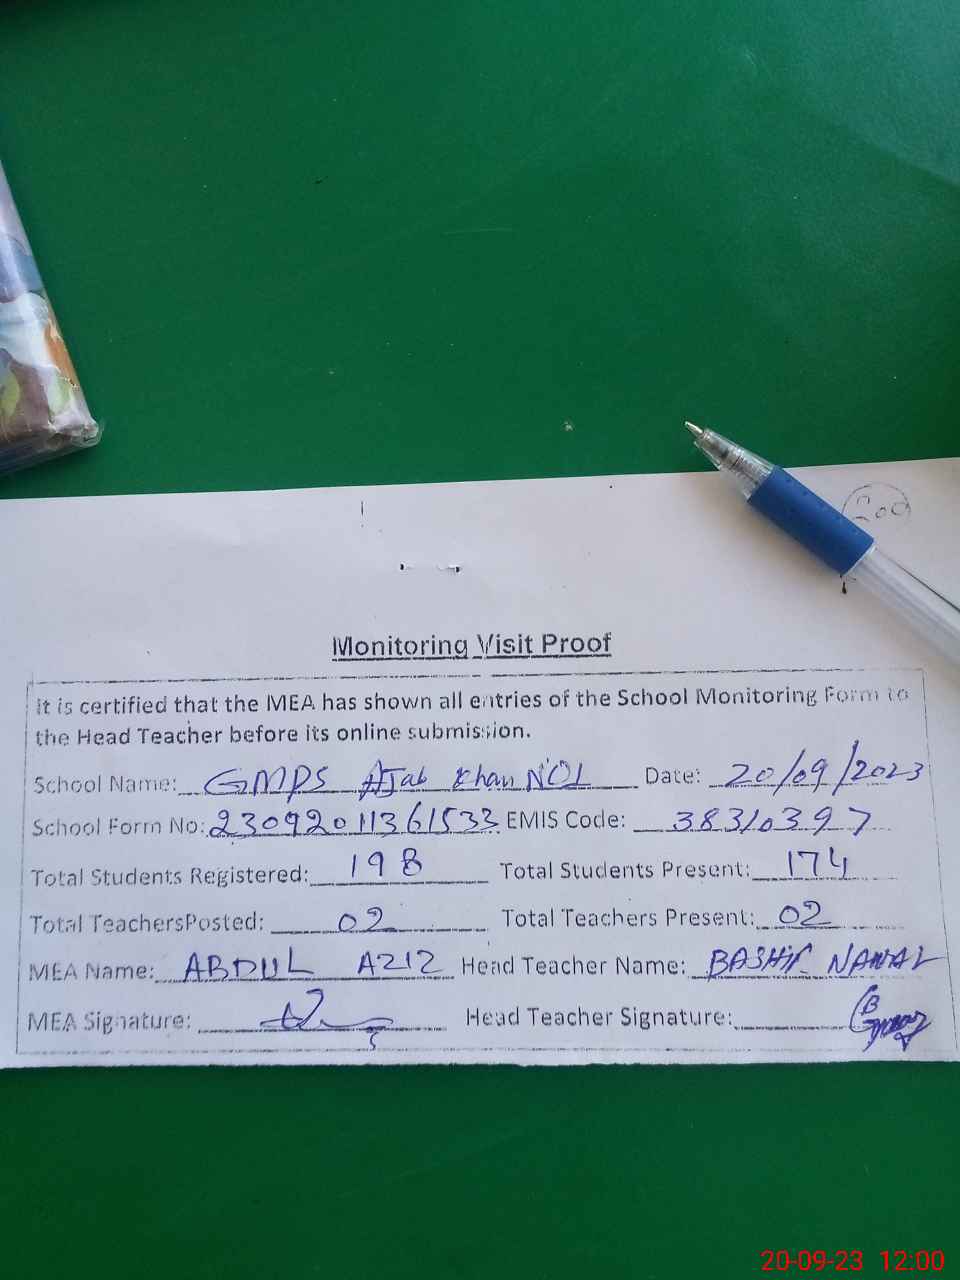 200
Monitoring Visit Proof
It is certified that the MEA has shown all entries of the School Monitoring Form to
the Head Teacher before its online submission.
School Name: GMPS AJab Khan NO1 Date: 20/09/2023
School Form No: 23092011361533 EMIS Code: 38310397
Total Students Registered: 198 Total Students Present: 174
Total TeachersPosted: 02 Total Teachers Present: 02
MEA Name: ABDUL AZIZ Head Teacher Name: BASHIR NAWAZ
MEA Signature: Head Teacher Signature:
20-09-23 12:00